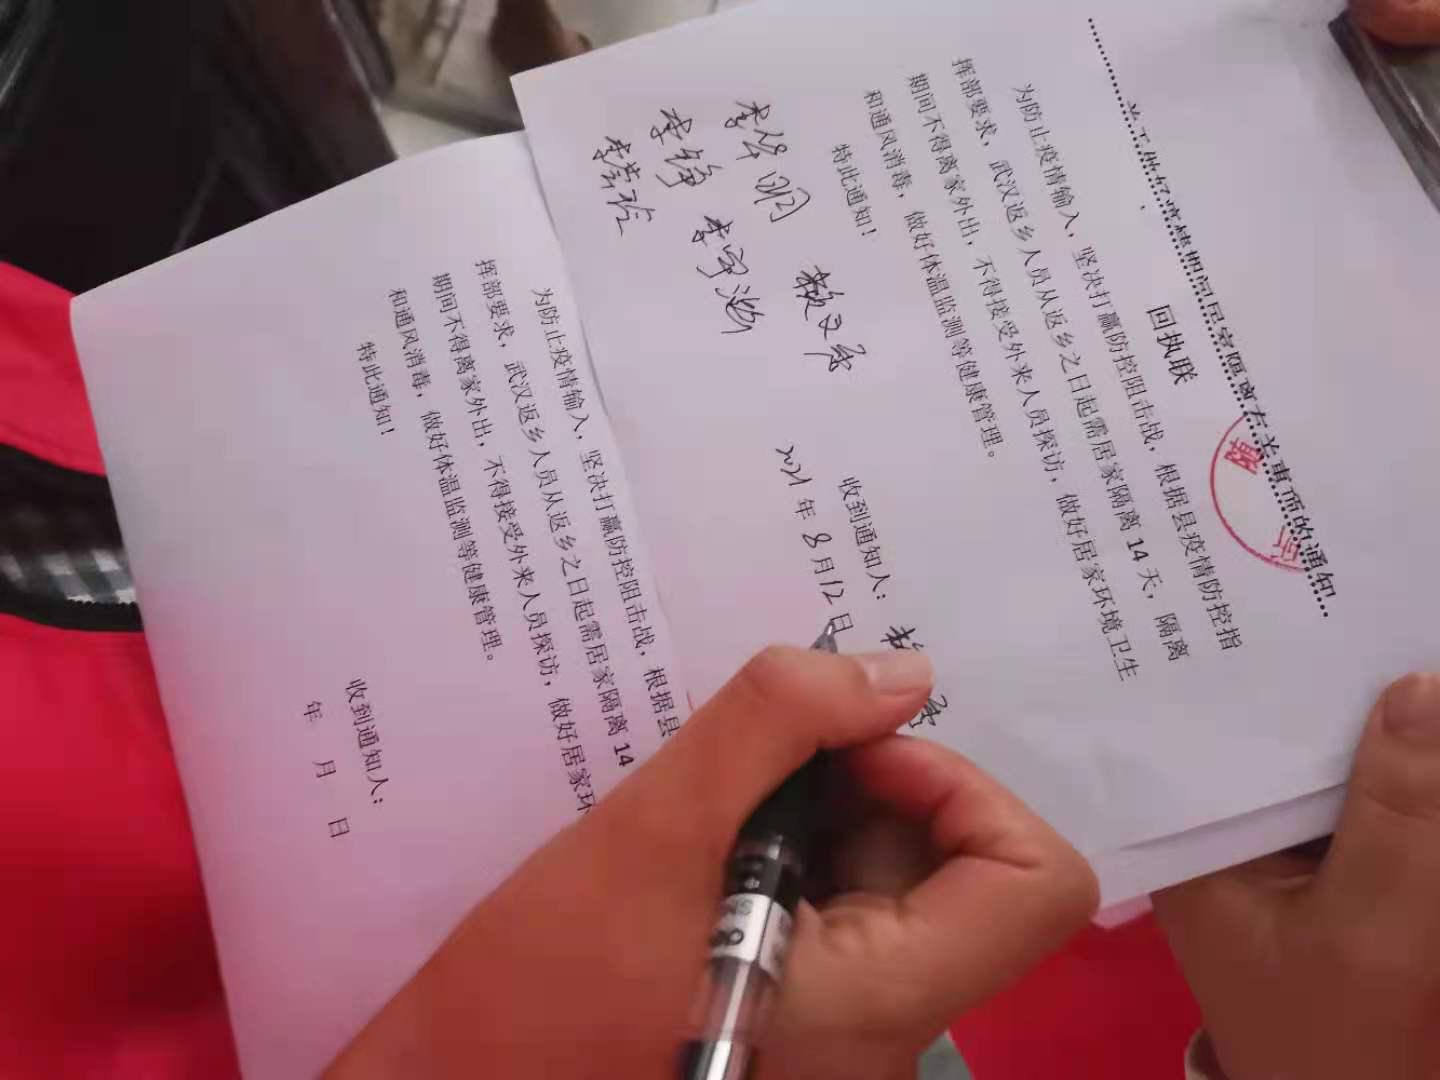 关于做好疫情期间居家隔离有关事项的通知
回执联
为防止疫情输入，坚决打赢防控阻击战，根据县疫情防控指
挥部要求，武汉返乡人员从返乡之日起需居家隔离 14 天，隔离
期间不得离家外出，不得接受外来人员探访，做好居家环境卫生
和通风消毒，做好体温监测等健康管理。
特此通知！
收到通知人：
2021年 8月12日
李
李铮
李
李
为防止疫情输入，坚决打赢防控阻击战，根据县
挥部要求，武汉返乡人员从返乡之日起需居家隔离 14
期间不得离家外出，不得接受外来人员探访，做好居家环
和通风消毒，做好体温监测等健康管理。
特此通知！
收到通知人：
年 月 日